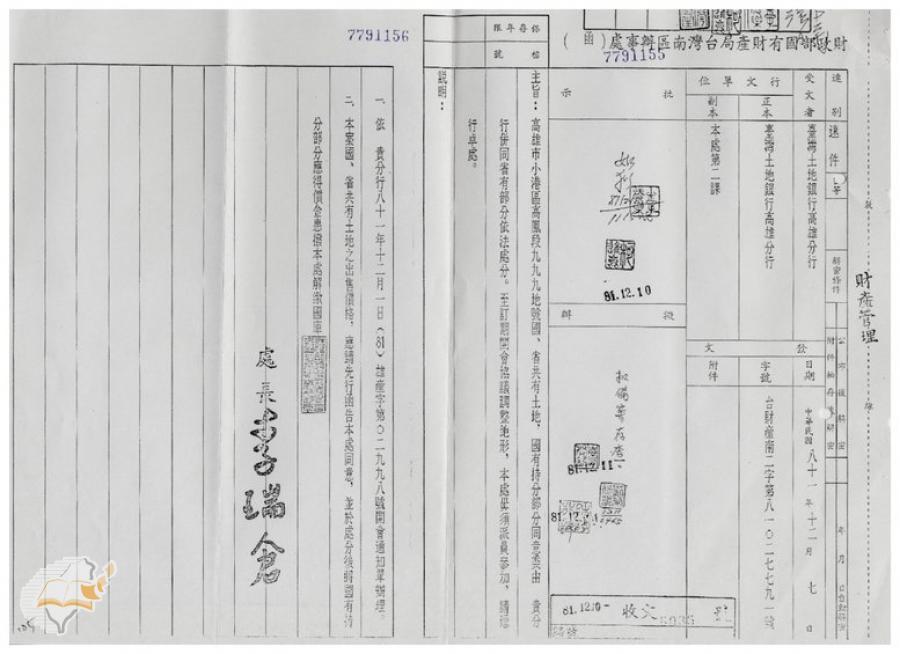 財政部國有財產局台灣南區辦事處(函)
7791155
速別
速件
受文者
臺灣土地銀行高雄分行
行文單位
正本
臺灣土地銀行高雄分行
副本
本處第二課
發文
日期
中華民國八十一年十二月七日
字號
台財產南二字第八一〇二七七九一號
附件
解密條件
公布後解密
附件抽存後解密
年月日自動解密
財產管理
批示
81.12.10
擬辦
擬備簽存查
81.12.11
81.12.10
收文
保存年限
檔號
主旨:高雄市小港區高鳳段九九九地號國、省共有土地,國有持分部分同意委由 貴分
行併同省有部分依法處分。至訂期開會協議調整地形,本處毋須派員參加,請逕
行卓處。
說明:
一、依 貴分行八十一年十二月一日(81)雄產字第〇二九九八號開會通知單辦理。
二、本案國、省共有土地之出售價格,應請先行函告本處同意,並於處分後將國有持
分部分應得價金惠撥本處解繳國庫
處長李瑞倉
7791156